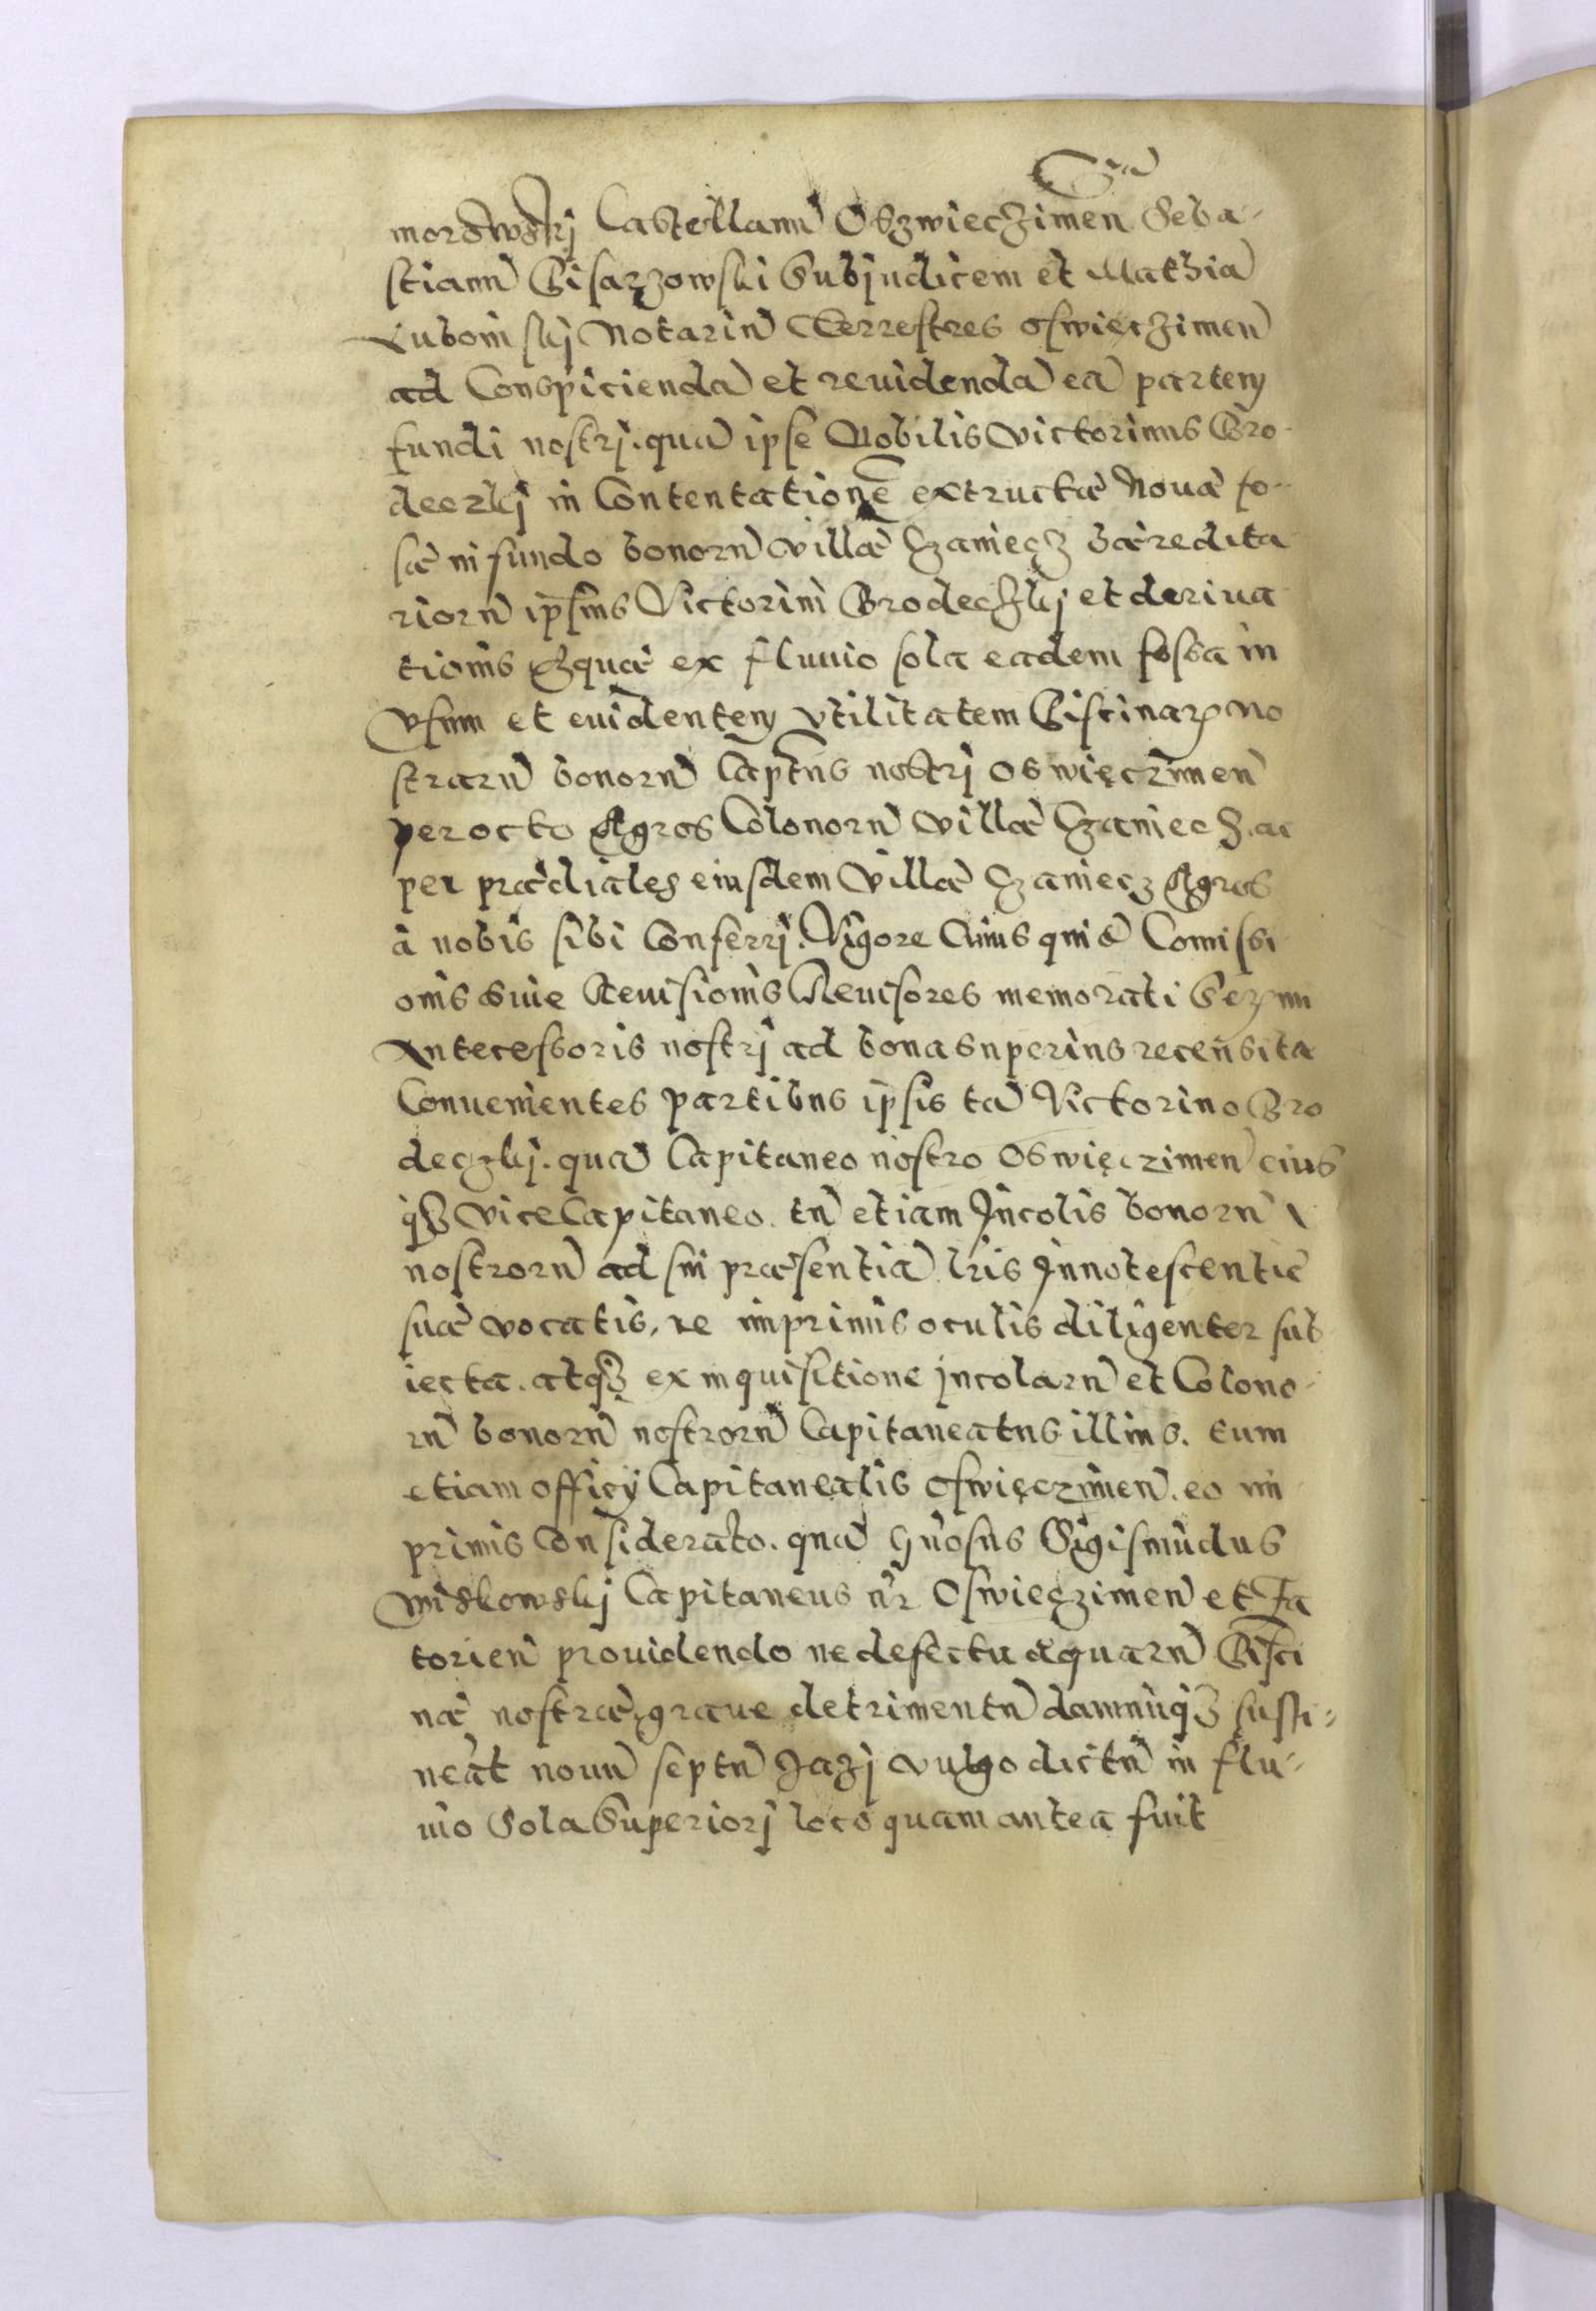 morswskij Castellanū Oszwieczimen̄ Seba-
stianū Pisarzowski Subiudicem et Mathiā
Lubomskij Notariū Terrestres oswieczimen̄
ad Conspiciendā et reuidendā eā partem
fundi nostrj. quā ipse Nobilis Victorinus Bro
deczkj in Contentationē extructæ Nouæ fo-
sæ in fundo bonorū villæ Czaniecz hæredita
riorū ipsius Victorini Brodeczkj et deriua
tionis Aquæ ex fluuio sola eadem fossa in
Vsum et euidentem vtilitatem Piscinarꝝ no
strarū bonorū Captus nostrj Oswięczimen̄
per octo Agros Colonorū villæ Czaniecz. ac
per prædiales eiusdem villæ Czaniecz Agros
à nobis sibi Conferrj. Vigore Cuius quidē Comissi
onis siue Reuisionis Reuisores memorati Serꝝmi
Antecessoris nostrj ad bona superius recensita
Conuenientes partibus ipsis tā Victorino Bro
deczkj. quā Capitaneo nostro Oswięczimen̄ eius
qȝ Vice Capitaneo. tū etiam Incolis bonorū
nostrorū ad sui præsentiā lr̄is Innotescentiæ
suæ vocatis, re imprimis oculis diligenter sub
iecta. atqȝ ex inquisitione incolarū et Colono-
rū bonorū nostrorū Capitaneatus illius. tum
etiam officij Capitanealis Oswięczimen̄. eo im
primis Considerato. quā Gn̄osus Sigismūdus
Miskowskj Capitaneus nr̄ Oswieczimen̄ et Za
torien̄ prouidendo ne defectu aquarū Pisci
næ nostræ graue detrimentū damnūqȝ susti-
neāt nouū septū Jazj vulgo dictū in flu-
uio Sola Superiorj loco quam antea fuit